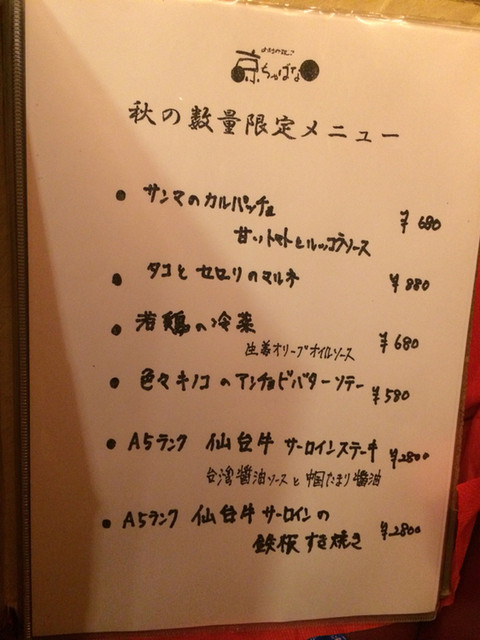 京ちゃばな
秋の数量限定メニュー
● サンマのカルパッチョ ¥680
甘いトマトとルッコラソース
● タコと セロリのマルネ ¥880
● 若鶏の冷菜 ¥680
生姜オリーブオイルソース
● 色々キノコのアンチョビバターソテー ¥580
● A5ランク 仙台牛 サーロインステーキ ¥2800
台湾醤油ソースと中国たまり醤油
● A5ランク 仙台牛サーロインの ¥2800
鉄板すき焼き